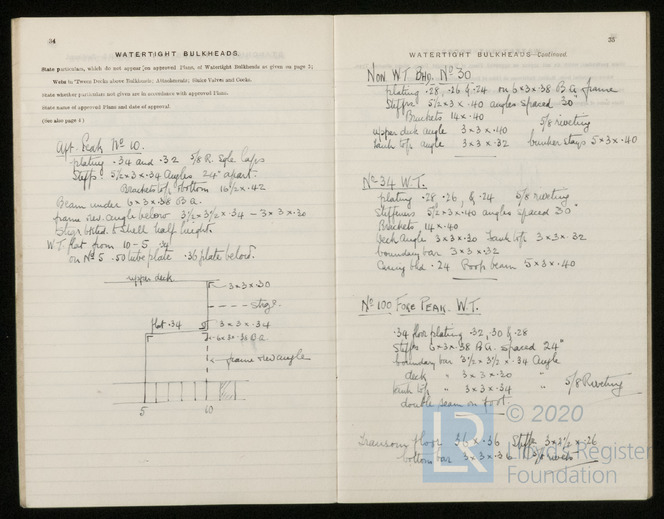 34
WATERTIGHT BULKHEADS.
State particulars, which do not appear on approved Plans, of Watertight Bulkheads as given on page 2;
Webs in 'Tween Decks above Bulkheads; Attachments; Sluice Valves and Cocks.
State whether particulars not given are in accordance with approved Plans.
State name of approved Plans and date of approval.
(See also page 4)
Aft. Peak No 10.
plating .34 and .32 5/8 R. Sgle Laps
Stiffs 5½ x 3 x .34 Angles 24" apart.
Brackets top & bottom 16½ x .42
Beam under 6 x 3 x .38 B.A.
frame rev. angle below 3½ x 3½ x .34 - 3 x 3 x .30
to shell half height.
W.T. flat from 10 - 5 .34
on No 5 .50 tube plate .36 plate below.
upper deck
3 x 3 x .30
flat .34
3 x 3 x .34
6 x 3 x .38 B.A.
frame rev angle
5 10
35
WATERTIGHT BULKHEADS—Continued.
Non WT Bhd. No 30
plating .28, .26 & .24 on 6 x 3 x .38 B.A. frame
Stiffrs 5½ x 3 x .40 angles spaced 30"
Brackets 14 x .40 5/8 riveting
upper deck angle 3 x 3 x .40
tank top angle 3 x 3 x .32 bunker stays 5 x 3 x .40
No 34 W.T.
plating .28 .26, & .24 5/8 riveting
Stiffeners 5½ x 3 x .40 angles spaced 30"
Brackets 14 x .40
deck Angle 3 x 3 x .30 Tank top 3 x 3 x .32
boundary bar 3 x 3 x .32
Casing bhd .24 Poop beam 5 x 3 x .40
No 100 Fore Peak. W.T.
.34 floor plating .32, .30 & .28
Stiffs 6 x 3 x .38 B.A. spaced 24"
boundary bar 3½ x 3½ x .34 Angle
deck " 3 x 3 x .30 "
tank top " 3 x 3 x .34 " 5/8 Riveting
double seam on foot.
Transom floor 36 x .36 Stiffs 3 x 2½ x .26
bottom bar 3 x 3 x .36 5/8 rivets
LR
© 2020
Lloyd's Register
Foundation